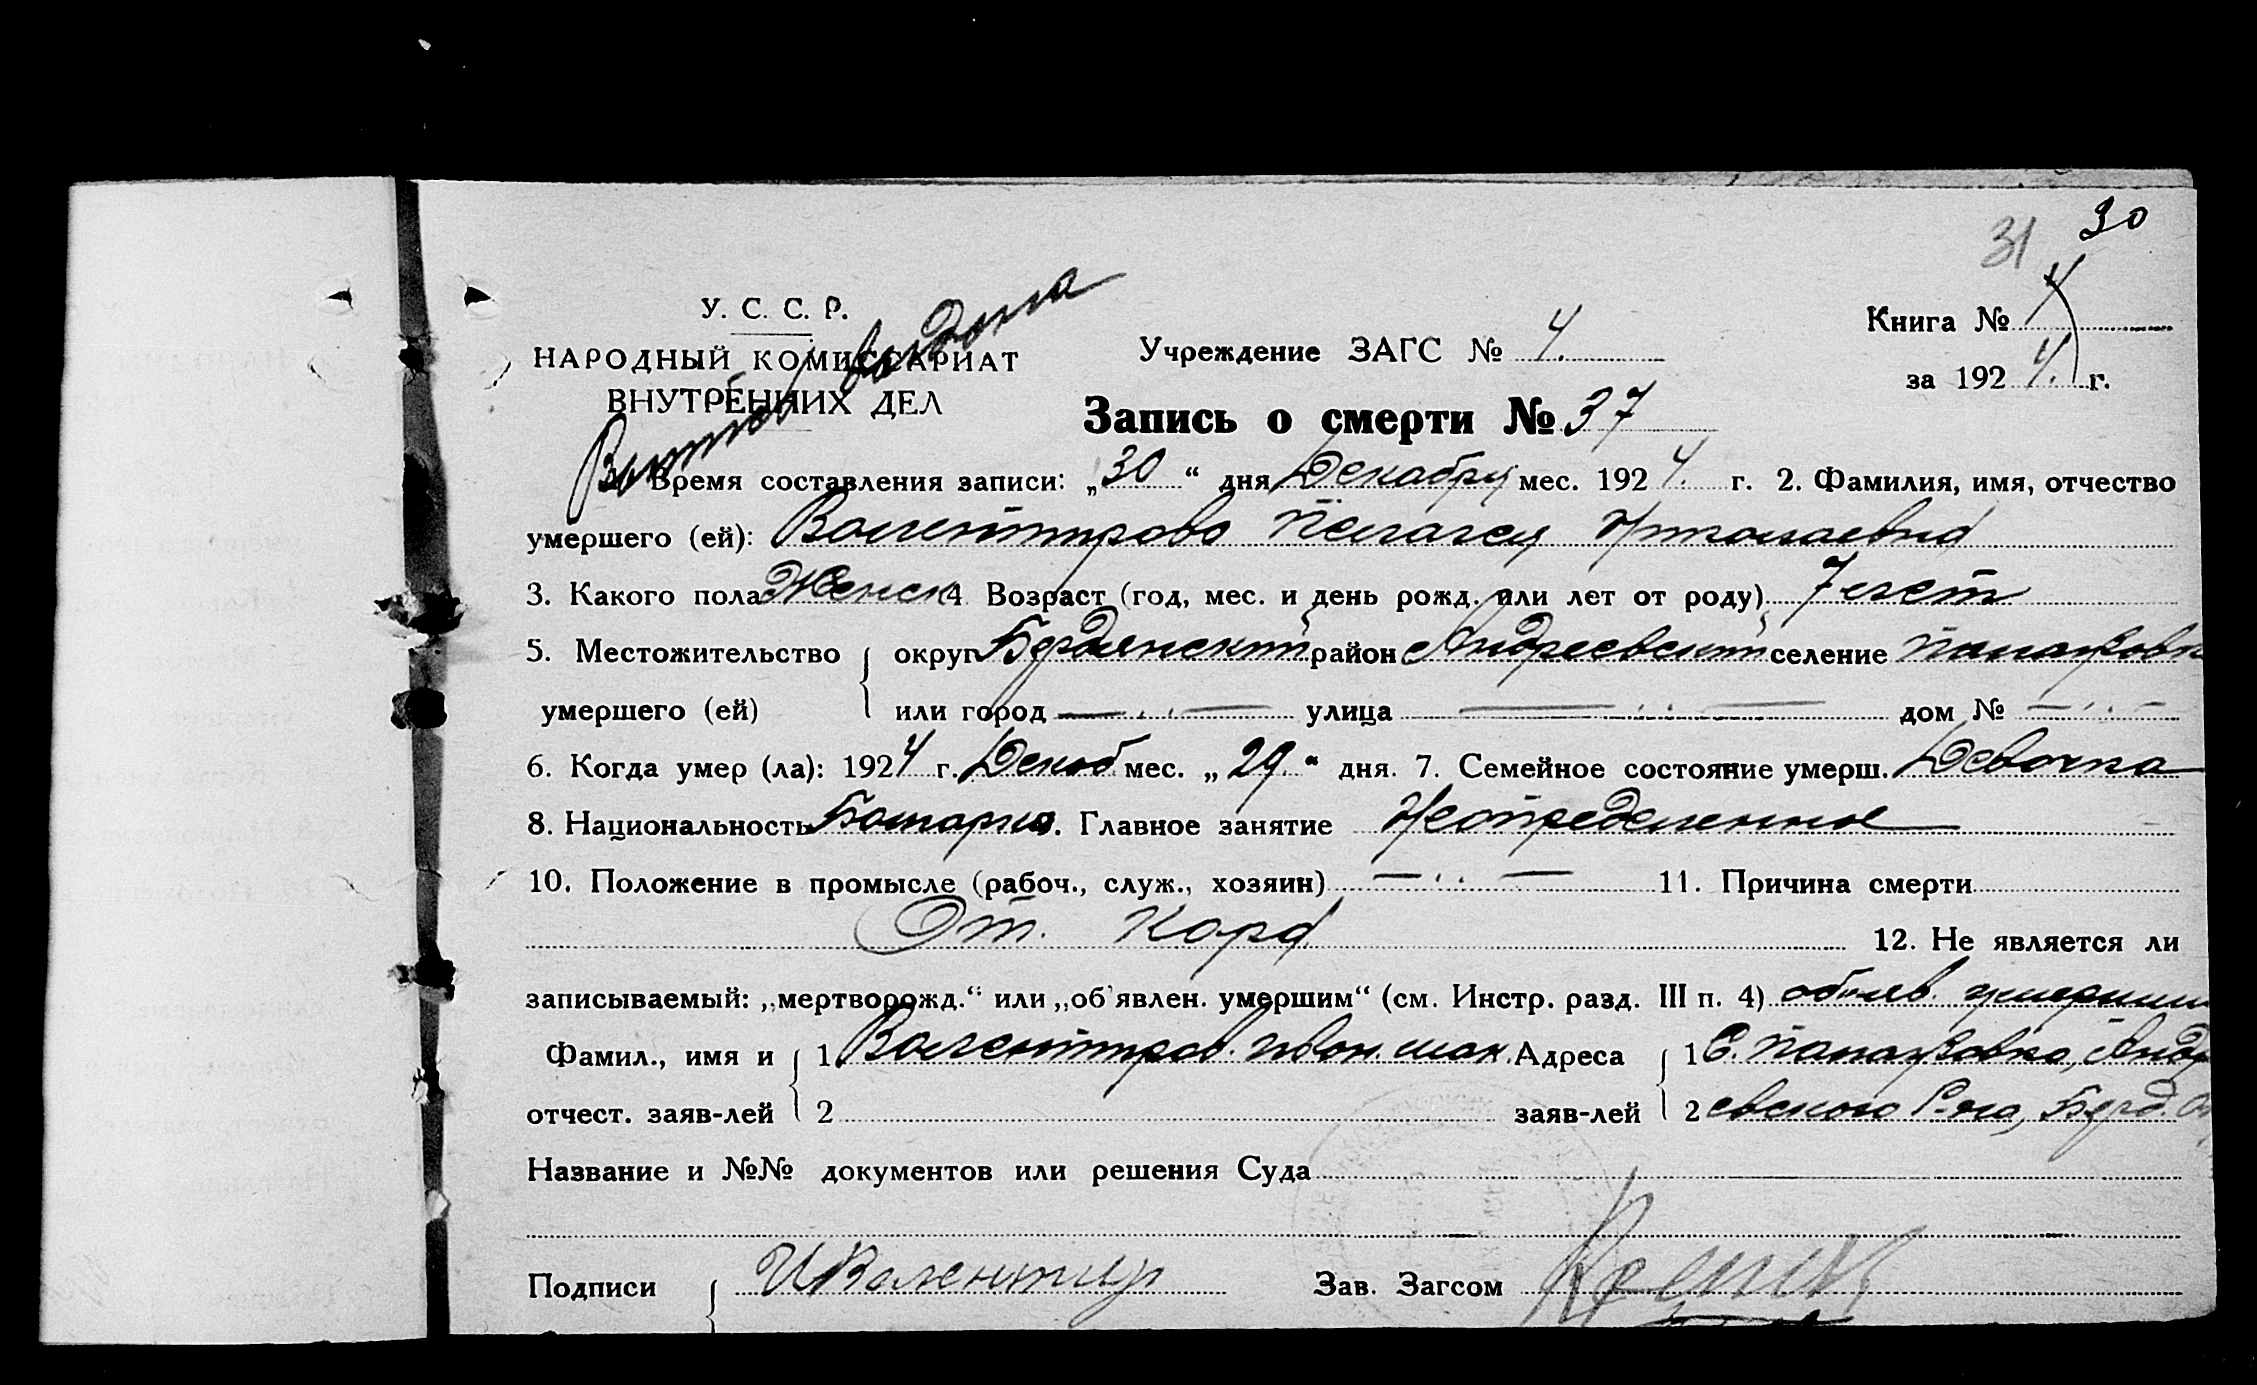 30
31
У. С. С. Р.
НАРОДНЫЙ КОМИССАРИАТ
ВНУТРЕННИХ ДЕЛ
Выпись выдана
Учреждение ЗАГС № 4.
Книга № 4
за 1924. г.
Запись о смерти № 37
Время составления записи: „30“ дня Декабря мес. 1924. г. 2. Фамилия, имя, отчество
умершего (ей): Валентирова Пелагея
3. Какого пола Женск 4 Возраст (год, мес. и день рожд. или лет от роду) 7 лет
5. Местожительство округ Бердянский район Андреевский селение
умершего (ей) или город улица дом №
6. Когда умер (ла): 1924 г. Декаб мес. „29.“ дня. 7. Семейное состояние умерш. Девочка
8. Национальность Главное занятие Неопределенное
10. Положение в промысле (рабоч., служ., хозяин) 11. Причина смерти
От. Кора
12. Не является ли
записываемый: „мертворожд.“ или „об'явлен. умершим“ (см. Инстр. разд. III п. 4) об'яв. умершим
Фамил., имя и 1 Валентиров. Иван. Адреса 1 С.
отчест. заяв-лей 2 заяв-лей 2 евского Р-на, Берд.
Название и №№ документов или решения Суда
Подписи ИВалентир Зав. Загсом